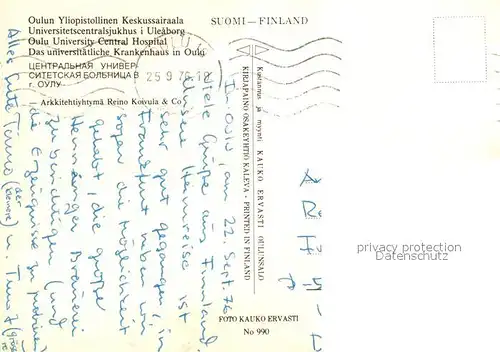 Oulun Yliopistollinen Keskussairaala
Universitetscentralsjukhus i Uleåborg
Oulu University Central Hospital
Das universitätliche Krankenhaus in Oulu
ЦЕНТРАЛЬНАЯ УНИВЕР-
СИТЕТСКАЯ БОЛЬНИЦА В
г. ОУЛУ
— Arkkitehtiyhtymä Reino Koivula & Co
SUOMI — FINLAND
OULU
25.9.76.18
Kustannus ja myynti KAUKO ERVASTI OULUNSALO
KIRJAPAINO OSAKEYHTIÖ KALEVA - PRINTED IN FINLAND
FOTO KAUKO ERVASTI
No 990
Oulu, am 22. Sept. 76
Viele Grüße aus Finnland.
Unsere Heimreise ist
sehr gut gegangen, in
Frankfurt haben wir
sogar die Möglichkeit
gehabt, die große
Henninger Brauerei
zu besichtigen (und
die Erzeugnisse zu probieren)
Alles Gute Timo (der kleinere) u. Timo
privacy protection
Ansichtskartenversand.com